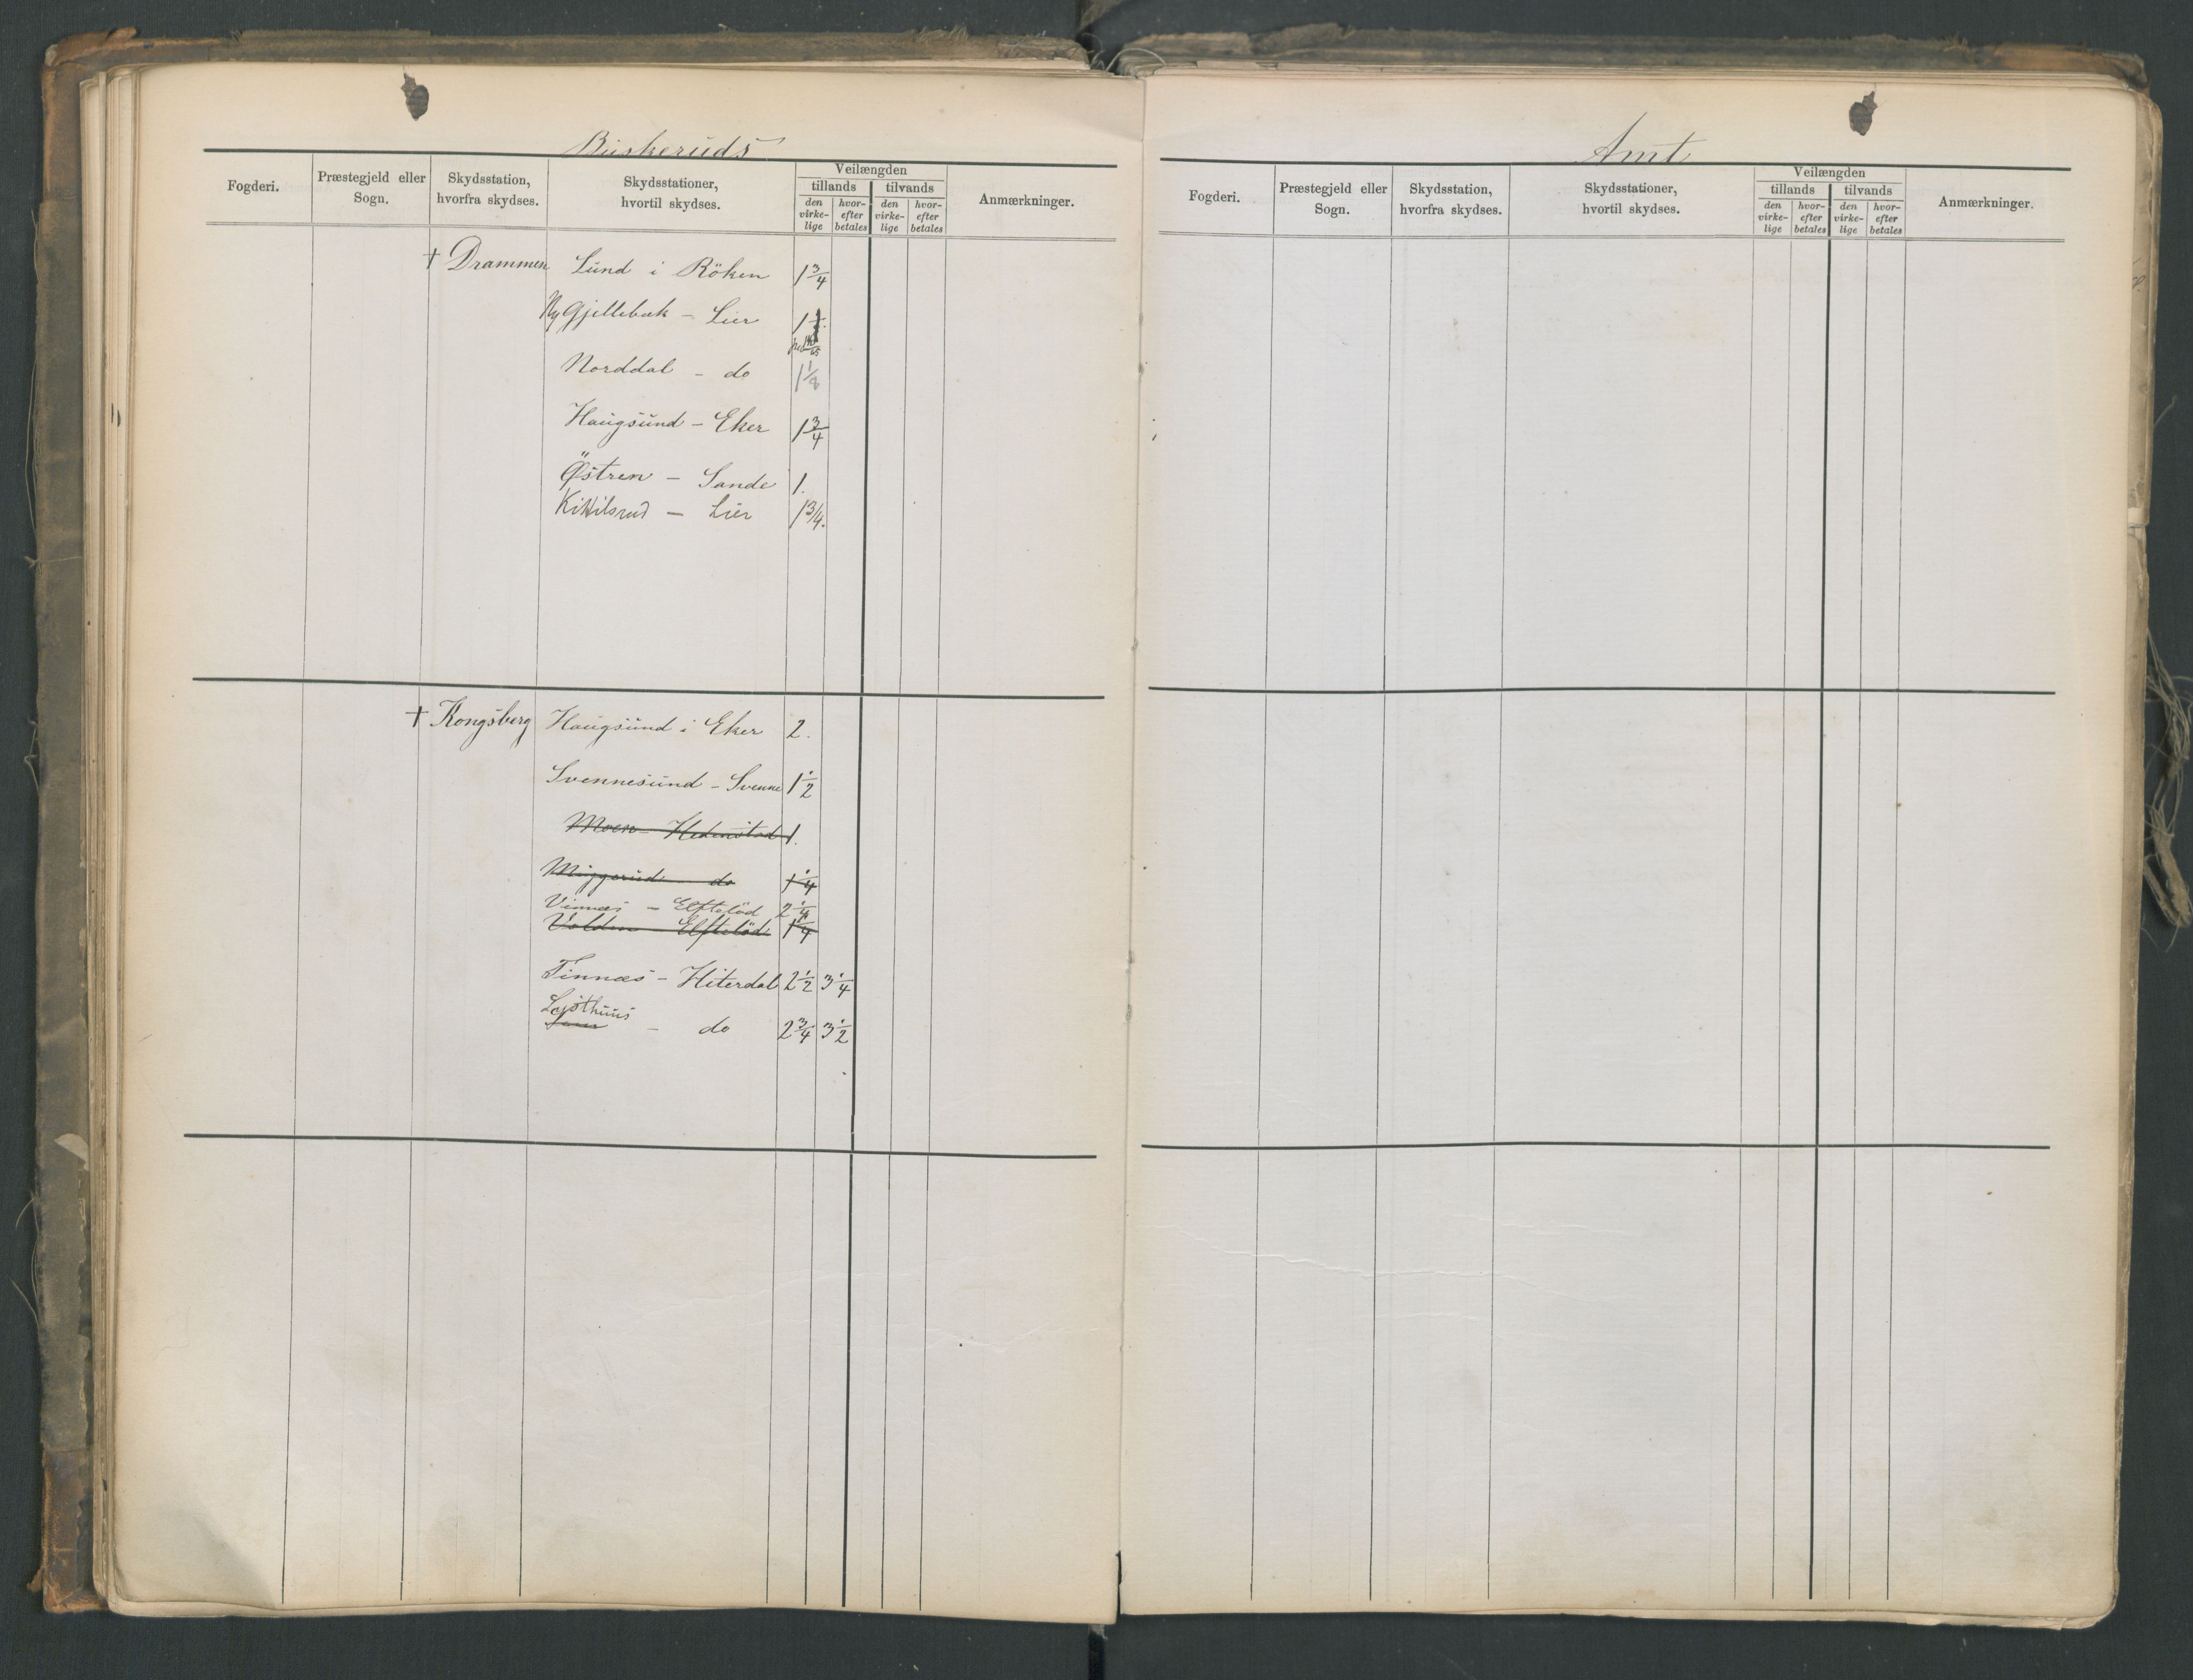 Buskeruds
Fogderi. Præstegjeld eller Sogn. Skydsstation, hvorfra skydses. Skydsstationer, hvortil skydses. Veilængden tillands tilvands den virke-lige hvor-efter betales den virke-lige hvor-efter betales Anmærkninger.
† Drammen Lund i Röken 1 3/4
Ny Gjellebæk - Lier 1
Norddal - do 1 1/8
Haugsund - Eker 1 3/4
Østren - Sande 1.
Kittilsrud - Lier 1 3/4.
† Kongsberg Haugsund i Eker 2.
Svennesund - Svenne 1 1/2
Moen - Hedenstad 1.
Miggerud do 1 1/4
Vinnæs - Eftelød 2 1/4
Volden Eftelød 1 1/4
Tinnæs - Hiterdal 2 1/2 3 1/4
Lysthuus
- do 2 3/4 3 1/2
Amt
Fogderi. Præstegjeld eller Sogn. Skydsstation, hvorfra skydses. Skydsstationer, hvortil skydses. Veilængden tillands tilvands den virke-lige hvor-efter betales den virke-lige hvor-efter betales Anmærkninger.